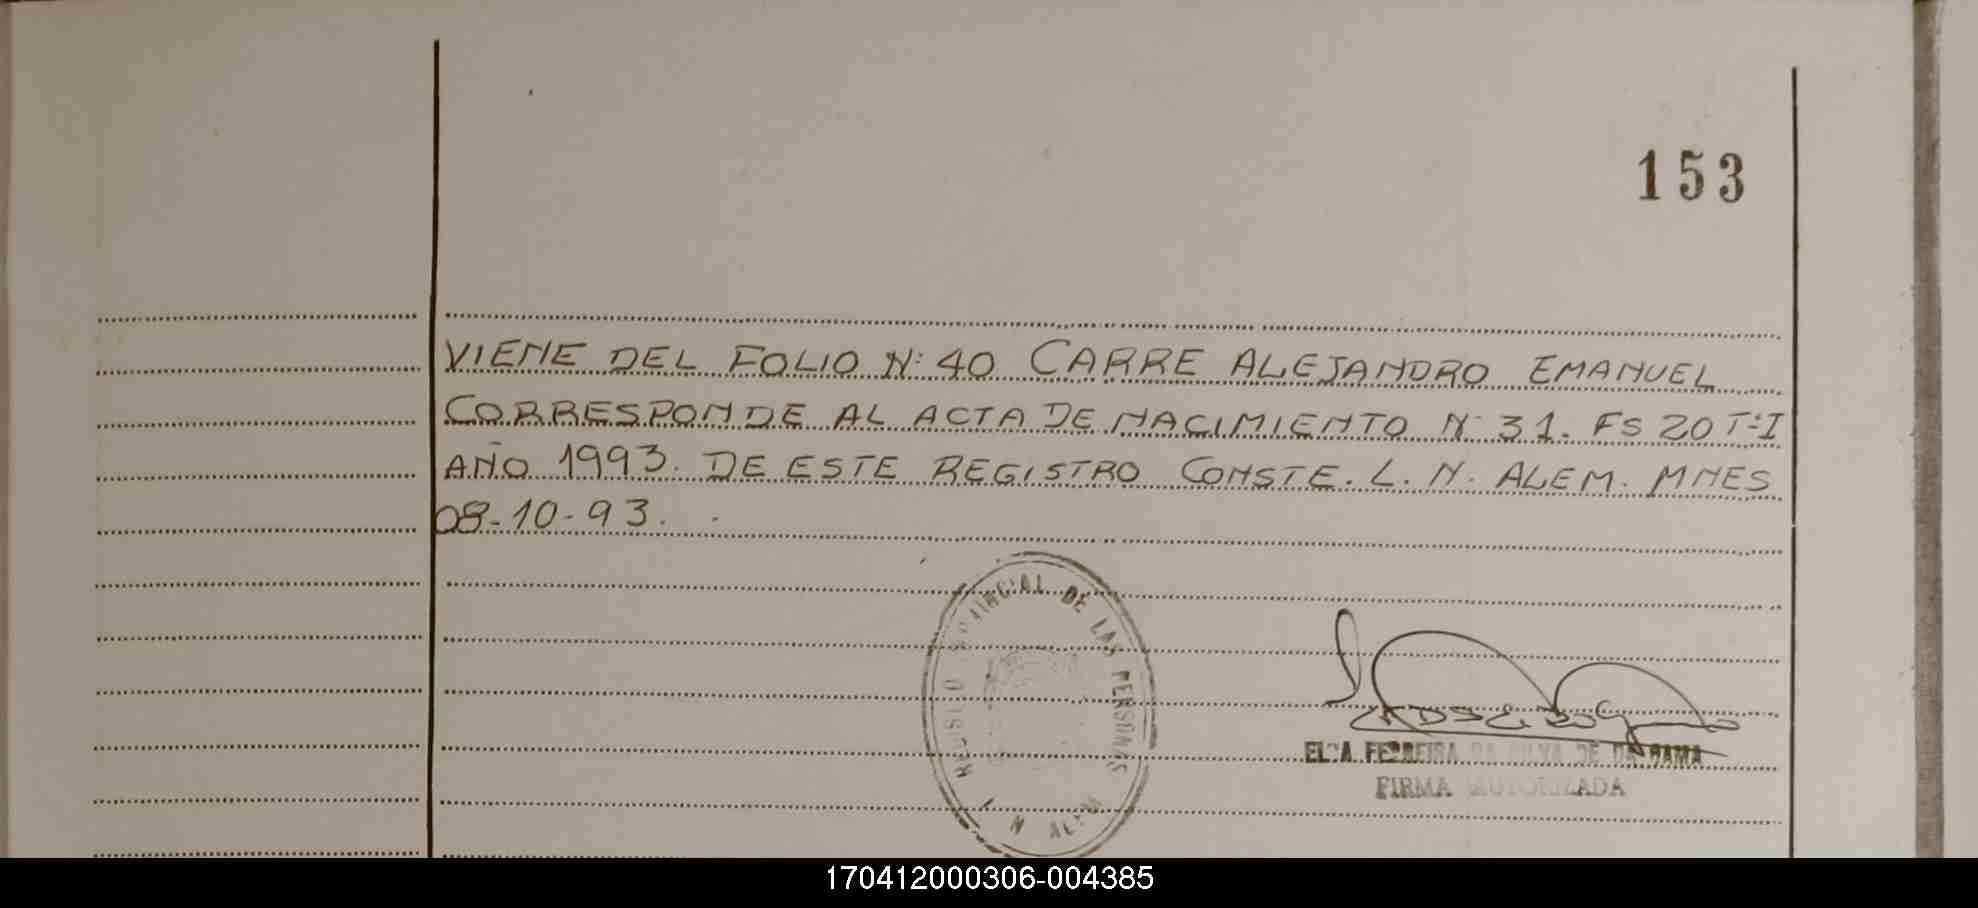 153
VIENE DEL FOLIO N: 40 CARRE ALEJANDRO EMANUEL
CORRESPONDE AL ACTA DE NACIMIENTO N° 31. FS 20 T°I
AÑO 1993. DE ESTE REGISTRO CONSTE. L. N. ALEM. MNES
08-10-93.
REGISTRO PROVINCIAL DE LAS PERSONAS
L N ALEM
FERREIRA DA SILVA DE DA GAMA
FIRMA AUTORIZADA
170412000306-004385